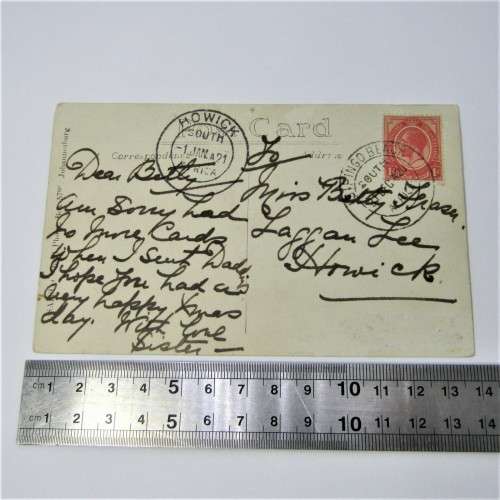 HOWICK
SOUTH
-1 JAN 21
Card
Correspondence
Address
Johannesburg
Dear Betty
Am Sorry had
no More Cards
When I Sent Dadd
I hope You had a
very happy Xmas
day. With love
Sister
To
Miss Betty
Laggan Lee
Howick.
SOUTH
cm 1 2 3 4 5 6 7 8 9 10 11 12 13 14
cm 1 2 3 4 5 6 7 8 9 10 11 12 13 14